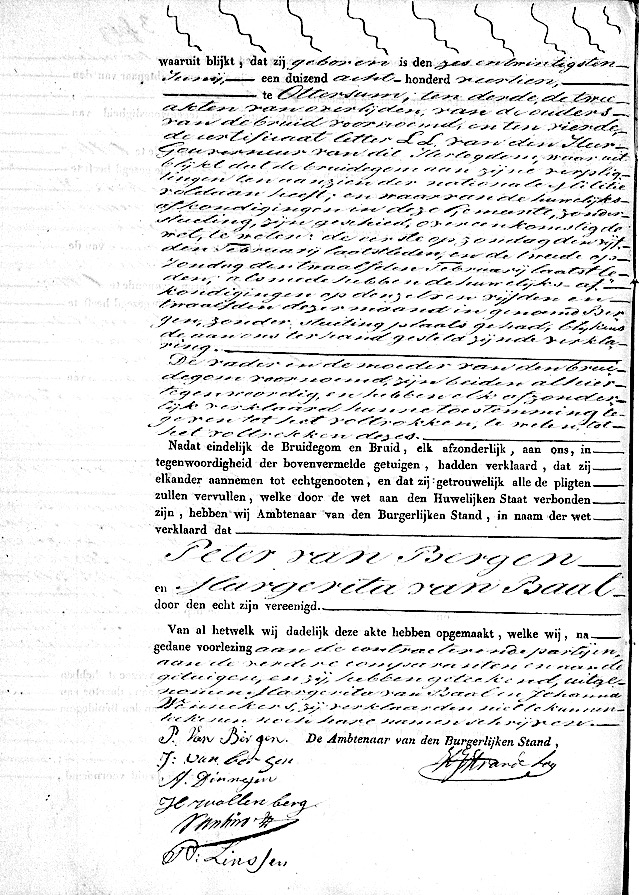 waaruit blijkt, dat zij geboren is den zes en twintigsten
Junij, een duizend acht honderd veertien,
te Ottersum; ten derde, de twee
akten van overlijden, van de ouders
van de bruid voornoemd, en ten vierde,
de certificaat letter L.L. van den Heer
Gouverneur van dit Hertogdom, waar uit
blijkt dat de bruidegom aan zijne verplig-
tingen ten aanzien der nationale Militie
voldaan heeft; en waar van de huwelijks-
afkondigingen in deze Gemeente, zonder
stuiting, zijn geschied, overeenkomstig de
wet, te weten: de eerste op zondag den vijf-
den Februarij laatstleden, en de tweede op
zondag den twaalfden Februarij laatstle-
den; alsmede hebben de huwelijks-af-
kondigingen op denzelven vijfden en
twaalfden dezer maand in genoemd Ber-
gen, zonder stuiting plaats gehad, blijkens
de aan ons ter hand gesteld zijnde verkla-
ring.
De vader en de moeder van den brui-
degom voornoemd, zijn beiden alhier
tegenwoordig, en hebben elk afzonder-
lijk verklaard hunne toestemming te
geven tot het voltrekken, te weten tot
het voltrekken dezes.
Nadat eindelijk de Bruidegom en Bruid, elk afzonderlijk, aan ons, in
tegenwoordigheid der bovenvermelde getuigen, hadden verklaard, dat zij
elkander aannemen tot echtgenooten, en dat zij getrouwelijk alle de pligten
zullen vervullen, welke door de wet aan den Huwelijken Staat verbonden
zijn, hebben wij Ambtenaar van den Burgerlijken Stand, in naam der wet
verklaard dat
Peter van Bergen
en Margerita van Baal
door den echt zijn vereenigd.
Van al hetwelk wij dadelijk deze akte hebben opgemaakt, welke wij, na
gedane voorlezing aan de contracterende partijen,
aan de verdere comparanten en aan de
getuigen, en zij hebben geteekend, uitge-
nomen Margerita van Baal en Johanna
zij verklaarden niet te kunnen
noch hare namen schrijven.
P. Van Bergen. De Ambtenaar van den Burgerlijken Stand,
J: van bergen
A. Dinnesen
H vwollenberg
P: Linssen